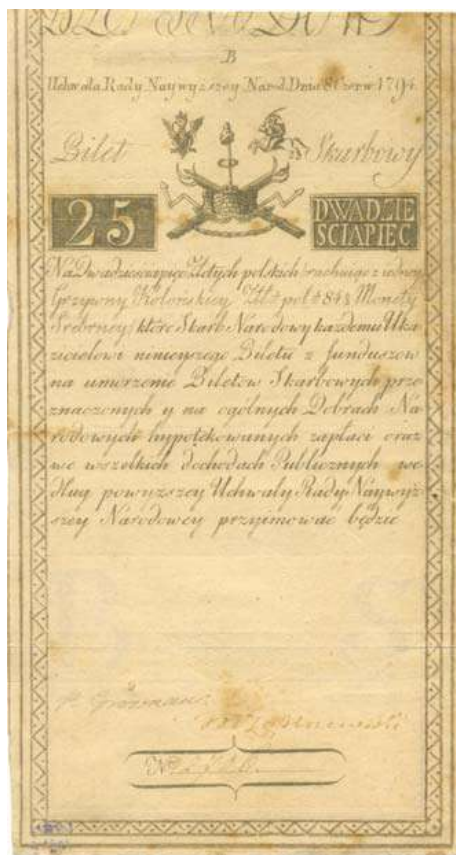 B
Uchwała Rady Naywyższey Narod. Dnia 8 Czerw. 1794.
Bilet Skarbowy
25 DWADZIE
SCIAPIEC
Na Dwadzieściapięć Złotych polskich rachuiąc z iedney
Grzywny Kolonskiey Zł: pol: 84½ Monety
Srebrney, które Skarb Narodowy każdemu Uka
zicielowi ninieyszego Biletu z funduszow
na umorzenie Biletow Skarbowych prze
znaczonych y na ogólnych Dobrach Na
rodowych hypotekowanych zapłaci oraz
we wszelkich dochodach Publicznych we
dług powyższey Uchwały Rady Naywyż
szey Narodowey przyimować będzie
Nº